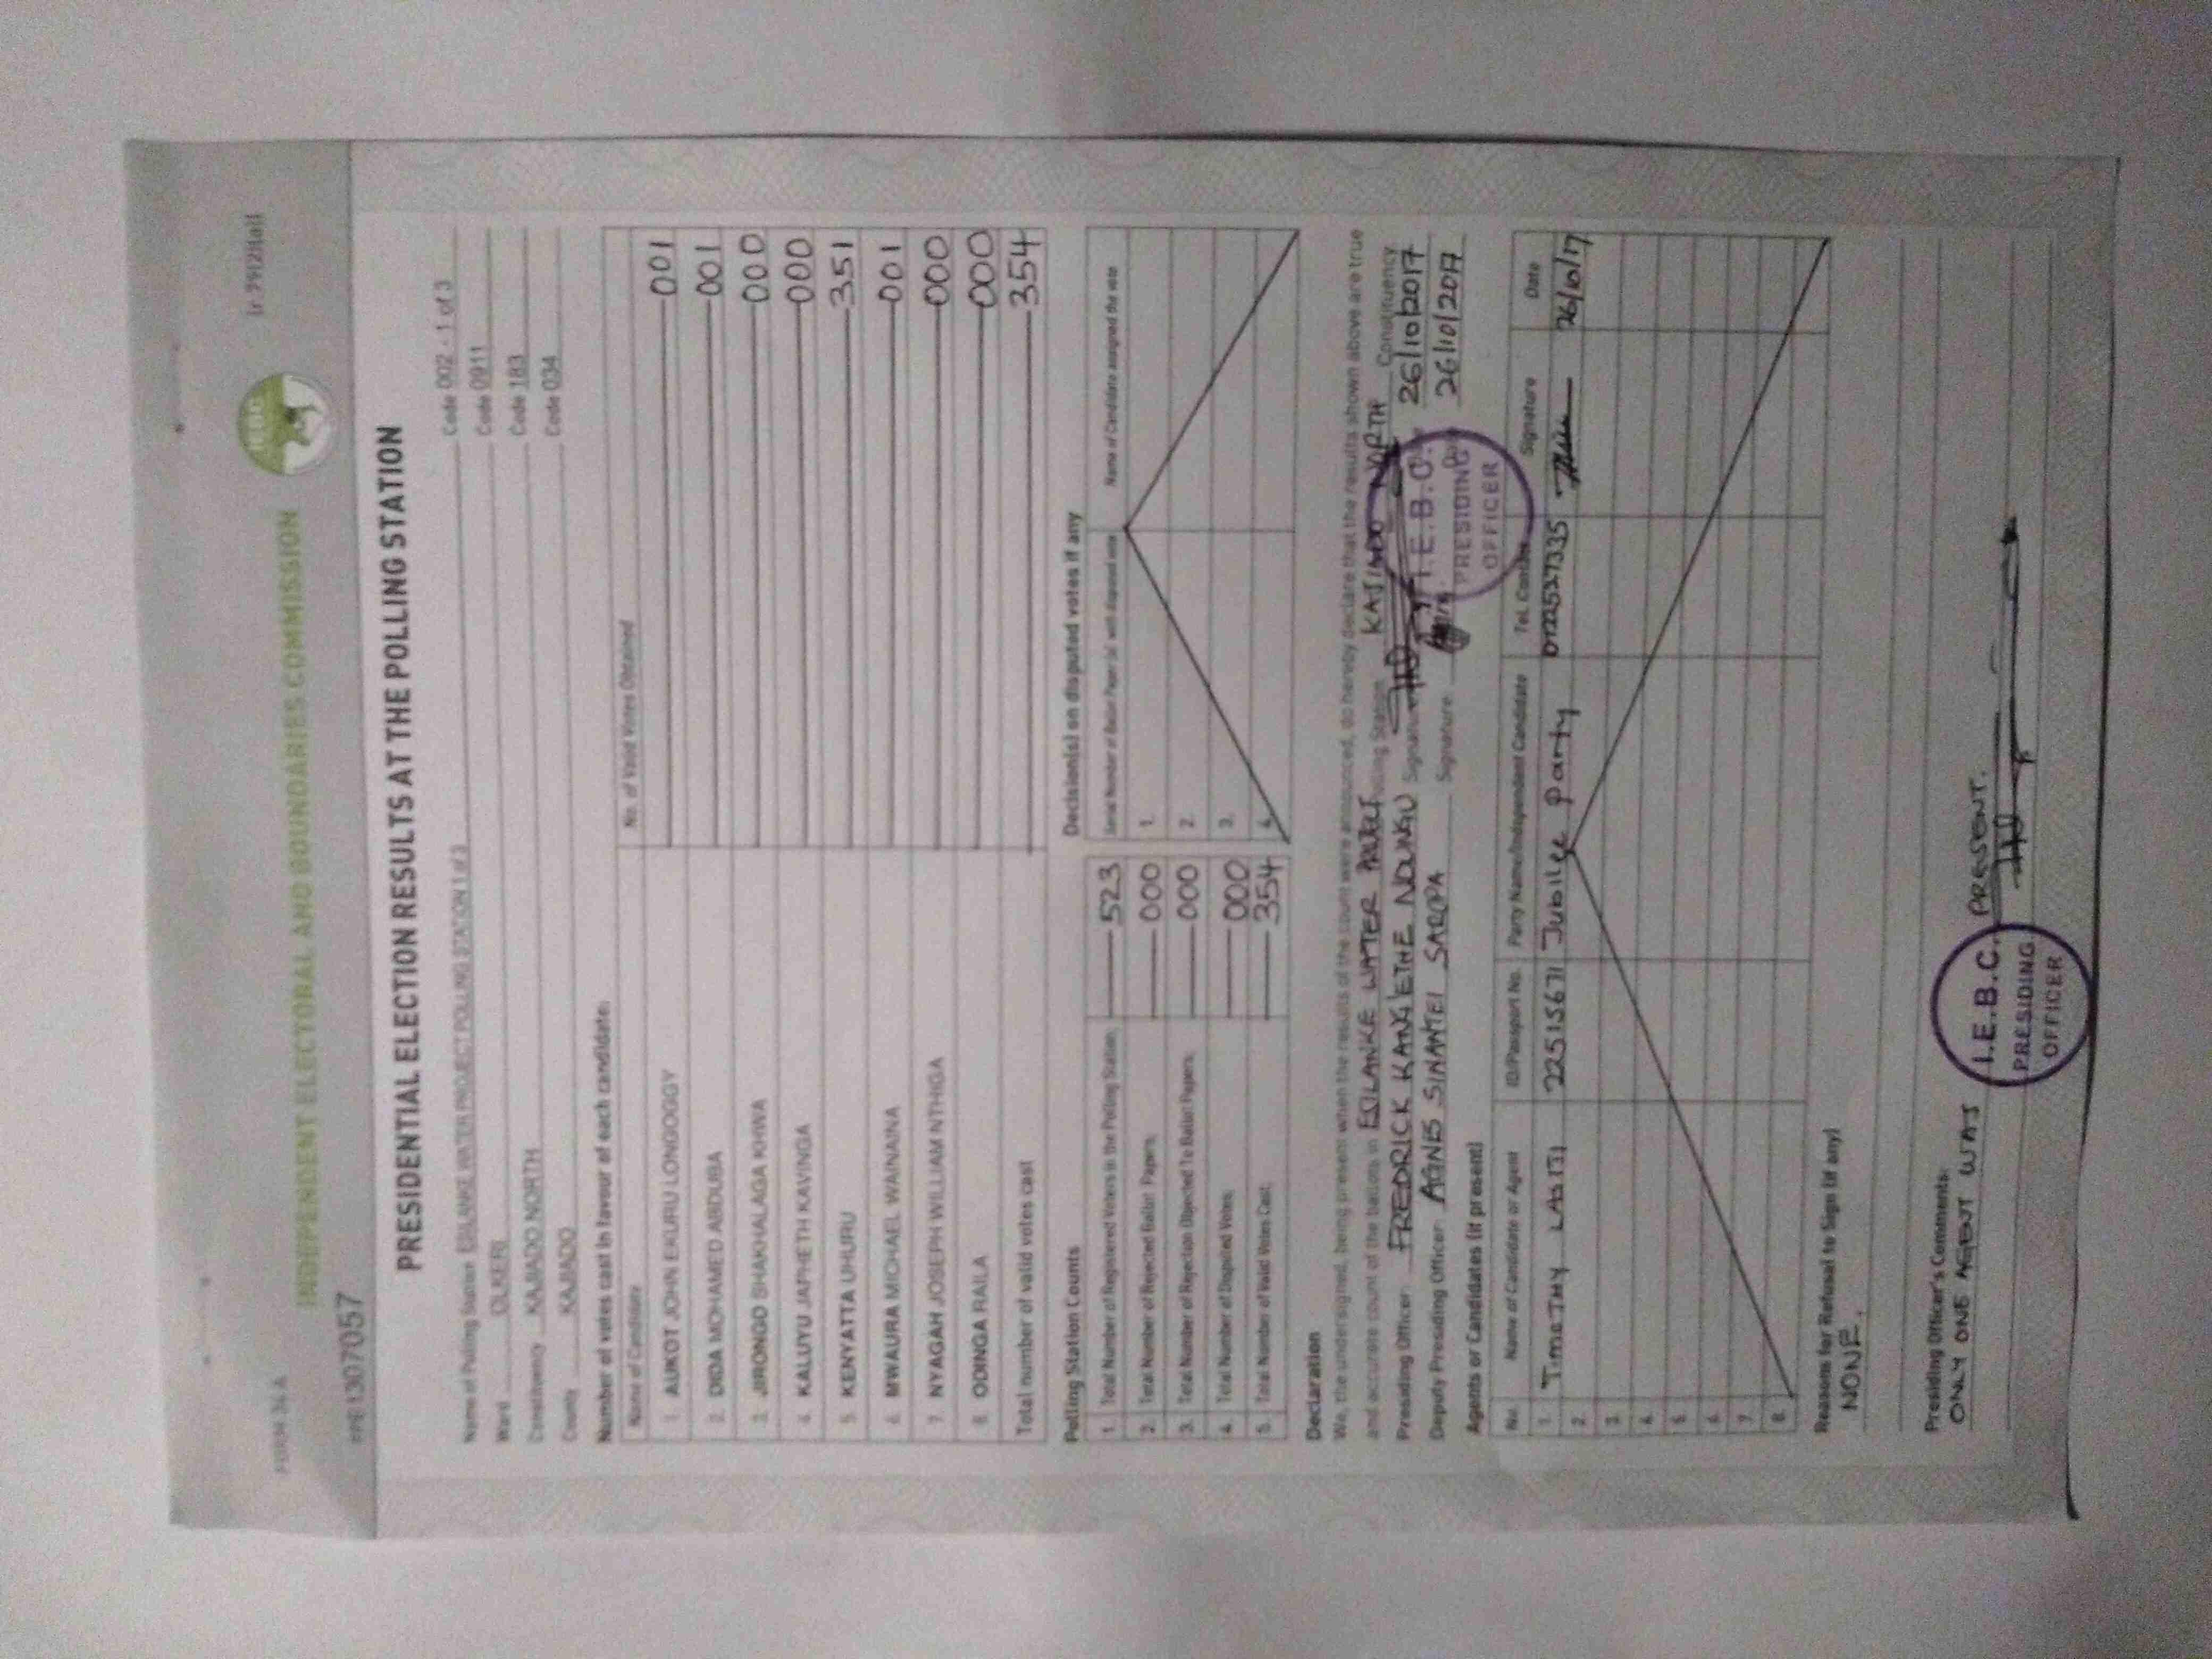 FORM 34 A
INDEPENDENT ELECTORAL AND BOUNDARIES COMMISSION
IEBC
1307057
PRESIDENTIAL ELECTION RESULTS AT THE POLLING STATION
Name of Polling Station ESILANKE WATER PROJECT POLLING STATION 1 of 3 Code 002 - 1 of 3
Ward OLKERI Code 0911
Constituency KAJIADO NORTH Code 183
County KAJIADO Code 034
Number of votes cast in favour of each candidate:
Name of Candidate No. of Valid Votes Obtained
1. AUKOT JOHN EKURU LONGOGGY 001
2. DIDA MOHAMED ABDUBA 001
3. JIRONGO SHAKHALAGA KHWA 000
4. KALUYU JAPHETH KAVINGA 000
5. KENYATTA UHURU 351
6. MWAURA MICHAEL WAINAINA 001
7. NYAGAH JOSEPH WILLIAM NTHIGA 000
8. ODINGA RAILA 000
Total number of valid votes cast 354
Polling Station Counts
1. Total Number of Registered Voters in the Polling Station 523
2. Total Number of Rejected Ballot Papers 000
3. Total Number of Rejection Objected To Ballot Papers 000
4. Total Number of Disputed Votes 000
5. Total Number of Valid Votes Cast 354
Decision(s) on disputed votes if any
Serial Number of Ballot Paper(s) with disputed vote Name of Candidate assigned the vote
1.
2.
3.
4.
Declaration
We, the undersigned, being present when the results of the count were announced, do hereby declare that the results shown above are true
and accurate count of the ballots in ESILANKE WATER Polling Station KAJIADO NORTH Constituency
Presiding Officer: FREDRICK KANG'ETHE NDUNGU Signature 26/10/2017
Deputy Presiding Officer: AGNES SINANTEI SAROPA Signature 26/10/2017
I.E.B.C.
PRESIDING
OFFICER
Agents or Candidates (if present)
No. Name of Candidate or Agent ID/Passport No. Party Name/Independent Candidate Tel. Contact Signature Date
1. Timothy 22515671 Jubilee Party 0722527335 26/10/17
2.
3.
4.
5.
6.
7.
8.
Reasons for Refusal to Sign (if any)
NONE.
Presiding Officer's Comments:
ONLY ONE AGENT WAS PRESENT.
I.E.B.C.
PRESIDING
OFFICER